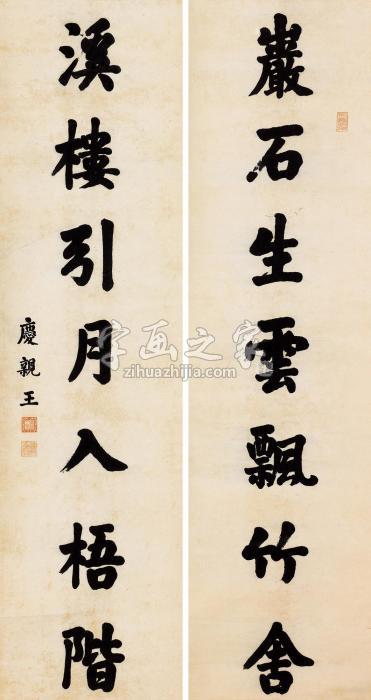 巖石生雲飄竹舍
溪樓引月入梧階
慶親王
字画之家
zihuazhijia.com